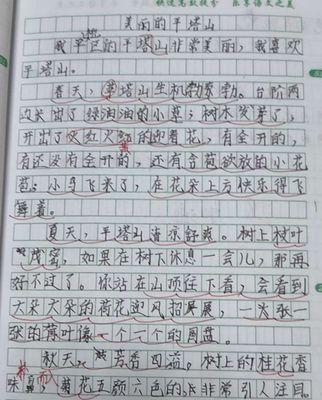 快速高效提分 乐享语文之美
美丽的平塔山
我平邑的平塔山非常美丽，我喜欢
平塔山。
春天，平塔山生机勃勃。台阶两
边长出了绿油油的小草；树木发芽了，
开出了火红火红的迎春花，有全开的，
有还没有全开的，还有含苞欲放的小花
苞；小鸟飞来了，在花朵上方快乐得飞
舞着。
夏天，平塔山清凉舒爽。树上枝叶
茂密，如果在树下休息一会儿，那再
好不过了。你站在山顶往下看，会看到
大朵大朵的荷花迎风招展，一张张一
张的荷叶像一个一个的圆盘。
秋天，芳香四溢。树上的桂花香
味扑鼻，菊花五颜六色的非常引人注目。